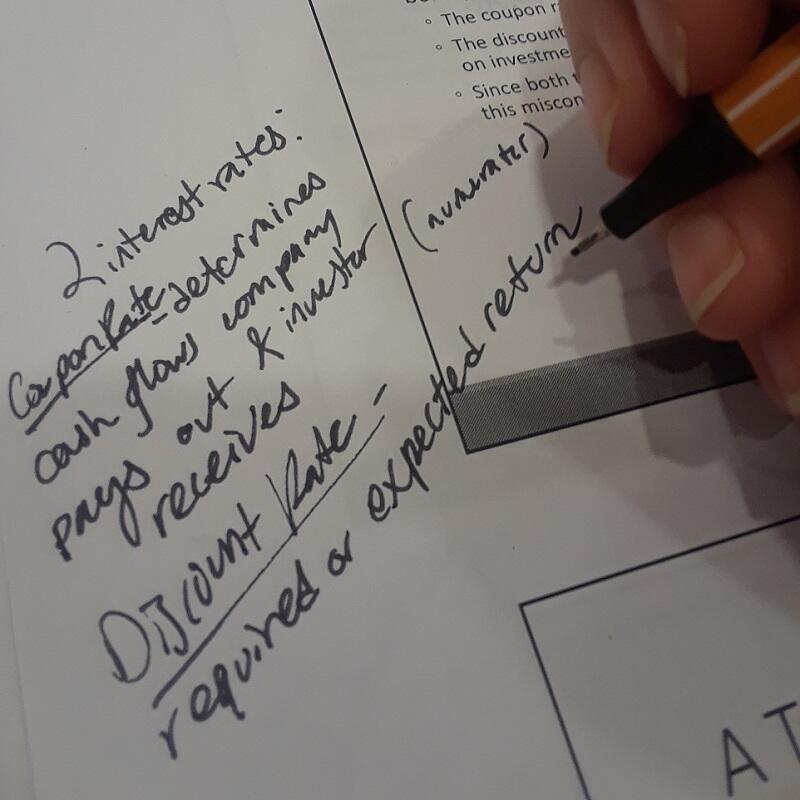 ◦ The coupon
◦ The discount
on investme
◦ Since both
this miscon
2 interest rates:
Coupon Rate - determines
cash flows company (numerator)
pays out & investor
receives
Discount Rate -
required or expected return
A T